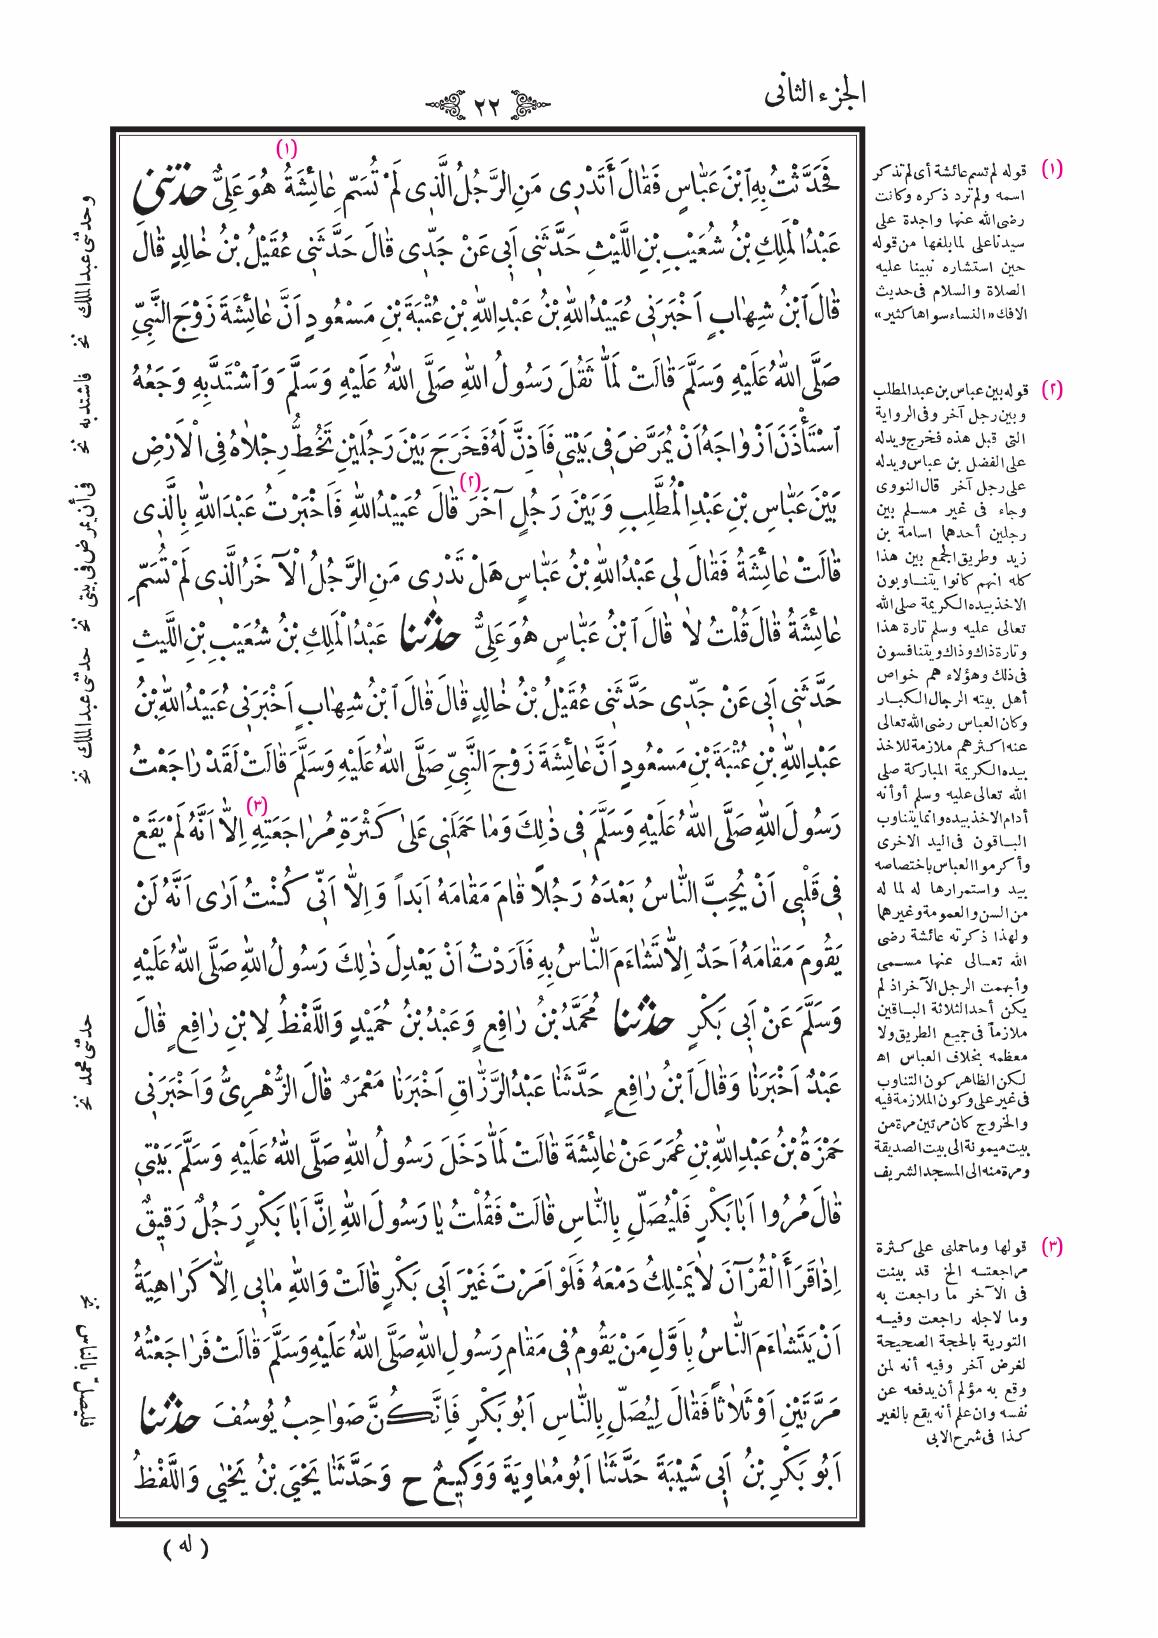 الجزء الثانى
٢٢
فَحَدَّثْتُ بِهِ ابْنَ عَبَّاسٍ فَقَالَ أَتَدْرِى مَنِ الرَّجُلُ الَّذِى لَمْ تُسَمِّ عَائِشَةُ (١) هُوَ عَلِيٌّ حدثنى
عَبْدُ الْمَلِكِ بْنُ شُعَيْبِ بْنِ اللَّيْثِ حَدَّثَنِى أَبِى عَنْ جَدِّى قَالَ حَدَّثَنِى عُقَيْلُ بْنُ خَالِدٍ قَالَ
قَالَ ابْنُ شِهَابٍ أَخْبَرَنِى عُبَيْدُ اللهِ بْنُ عَبْدِ اللهِ بْنِ عُتْبَةَ بْنِ مَسْعُودٍ أَنَّ عَائِشَةَ زَوْجَ النَّبِيِّ
صَلَّى اللهُ عَلَيْهِ وَسَلَّمَ قَالَتْ لَمَّا ثَقُلَ رَسُولُ اللهِ صَلَّى اللهُ عَلَيْهِ وَسَلَّمَ وَاشْتَدَّ بِهِ وَجَعُهُ
اسْتَأْذَنَ أَزْوَاجَهُ أَنْ يُمَرَّضَ فِى بَيْتِى فَأَذِنَّ لَهُ فَخَرَجَ بَيْنَ رَجُلَيْنِ تَخُطُّ رِجْلَاهُ فِى الْأَرْضِ
بَيْنَ عَبَّاسِ بْنِ عَبْدِ الْمُطَّلِبِ وَبَيْنَ رَجُلٍ آخَرَ (٢) قَالَ عُبَيْدُ اللهِ فَأَخْبَرْتُ عَبْدَ اللهِ بِالَّذِى
قَالَتْ عَائِشَةُ فَقَالَ لِى عَبْدُ اللهِ بْنُ عَبَّاسٍ هَلْ تَدْرِى مَنِ الرَّجُلُ الْآخَرُ الَّذِى لَمْ تُسَمِّ
عَائِشَةُ قَالَ قُلْتُ لَا قَالَ ابْنُ عَبَّاسٍ هُوَ عَلِيٌّ حدثنا عَبْدُ الْمَلِكِ بْنُ شُعَيْبِ بْنِ اللَّيْثِ
حَدَّثَنِى أَبِى عَنْ جَدِّى حَدَّثَنِى عُقَيْلُ بْنُ خَالِدٍ قَالَ قَالَ ابْنُ شِهَابٍ أَخْبَرَنِى عُبَيْدُ اللهِ بْنُ
عَبْدِ اللهِ بْنِ عُتْبَةَ بْنِ مَسْعُودٍ أَنَّ عَائِشَةَ زَوْجَ النَّبِيِّ صَلَّى اللهُ عَلَيْهِ وَسَلَّمَ قَالَتْ لَقَدْ رَاجَعْتُ
رَسُولَ اللهِ صَلَّى اللهُ عَلَيْهِ وَسَلَّمَ فِى ذٰلِكَ وَمَا حَمَلَنِى عَلَى كَثْرَةِ مُرَاجَعَتِهِ (٣) إِلَّا أَنَّهُ لَمْ يَقَعْ
فِى قَلْبِى أَنْ يُحِبَّ النَّاسُ بَعْدَهُ رَجُلاً قَامَ مَقَامَهُ أَبَداً وَإِلَّا أَنِّى كُنْتُ أَرَى أَنَّهُ لَنْ
يَقُومَ مَقَامَهُ أَحَدٌ إِلَّا تَشَاءَمَ النَّاسُ بِهِ فَأَرَدْتُ أَنْ يَعْدِلَ ذٰلِكَ رَسُولُ اللهِ صَلَّى اللهُ عَلَيْهِ
وَسَلَّمَ عَنْ أَبِى بَكْرٍ حدثنا مُحَمَّدُ بْنُ رَافِعٍ وَعَبْدُ بْنُ حُمَيْدٍ وَاللَّفْظُ لِابْنِ رَافِعٍ قَالَ
عَبْدٌ أَخْبَرَنَا وَقَالَ ابْنُ رَافِعٍ حَدَّثَنَا عَبْدُ الرَّزَّاقِ أَخْبَرَنَا مَعْمَرٌ قَالَ الزُّهْرِىُّ وَأَخْبَرَنِى
حَمْزَةُ بْنُ عَبْدِ اللهِ بْنِ عُمَرَ عَنْ عَائِشَةَ قَالَتْ لَمَّا دَخَلَ رَسُولُ اللهِ صَلَّى اللهُ عَلَيْهِ وَسَلَّمَ بَيْتِى
قَالَ مُرُوا أَبَا بَكْرٍ فَلْيُصَلِّ بِالنَّاسِ قَالَتْ فَقُلْتُ يَا رَسُولَ اللهِ إِنَّ أَبَا بَكْرٍ رَجُلٌ رَقِيقٌ
إِذَا قَرَأَ الْقُرْآنَ لَا يَمْلِكُ دَمْعَهُ فَلَوْ أَمَرْتَ غَيْرَ أَبِى بَكْرٍ قَالَتْ وَاللهِ مَا بِى إِلَّا كَرَاهِيَةُ
أَنْ يَتَشَاءَمَ النَّاسُ بِأَوَّلِ مَنْ يَقُومُ فِى مَقَامِ رَسُولِ اللهِ صَلَّى اللهُ عَلَيْهِ وَسَلَّمَ قَالَتْ فَرَاجَعْتُهُ
مَرَّتَيْنِ أَوْ ثَلَاثاً فَقَالَ لِيُصَلِّ بِالنَّاسِ أَبُو بَكْرٍ فَإِنَّكُنَّ صَوَاحِبُ يُوسُفَ حدثنا
أَبُو بَكْرِ بْنُ أَبِى شَيْبَةَ حَدَّثَنَا أَبُو مُعَاوِيَةَ وَوَكِيعٌ ح وَحَدَّثَنَا يَحْيَى بْنُ يَحْيَى وَاللَّفْظُ
( له )
(١) قوله لم تسم عائشة أى لم تذكر
اسمه ولم ترد ذكره وكانت
رضى الله عنها واجدة على
سيدنا على لما بلغها من قوله
حين استشاره نبينا عليه
الصلاة والسلام فى حديث
الافك «النساء سواها كثير»
(٢) قوله بين عباس بن عبد المطلب
وبين رجل آخر وفى الرواية
التى قبل هذه فخرج ويدله
على الفضل بن عباس ويدله
على رجل آخر قال النووى
وجاء فى غير مسلم بين
رجلين أحدهما اسامة بن
زيد وطريق الجمع بين هذا
كله انهم كانوا يتناوبون
الاخذ بيده الكريمة صلى الله
تعالى عليه وسلم تارة هذا
وتارة ذاك وذاك ويتنافسون
فى ذلك وهؤلاء هم خواص
أهل بيته الرجال الكبار
وكان العباس رضى الله تعالى
عنه اكثرهم ملازمة للاخذ
بيده الكريمة المباركة صلى
الله تعالى عليه وسلم أو أنه
أدام الاخذ بيده وانما يتناوب
الباقون فى اليد الاخرى
وأكرموا العباس باختصاصه
بيد واستمرارها له لما له
من السن والعمومة وغيرهما
ولهذا ذكرته عائشة رضى
الله تعالى عنها مسمى
وأبهمت الرجل الآخر اذ لم
يكن أحد الثلاثة الباقين
ملازماً فى جميع الطريق ولا
معظمه بخلاف العباس اه
لكن الظاهر كون التناوب
فى غير على وكون الملازمة فيه
والخروج كان مرتين مرة من
بيت ميمونة الى بيت الصديقة
ومرة منه الى المسجد الشريف
(٣) قولها وما حملنى على كثرة
مراجعته الخ قد بينت
فى الآخر ما راجعت به
وما لاجله راجعت وفيه
التورية بالحجة الصحيحة
لغرض آخر وفيه أنه لمن
وقع به مؤلم أن يدفعه عن
نفسه وان علم أنه يقع بالغير
كذا فى شرح الابى
وحدثنى عبد الملك نخ
فاشتد به نخ
فى أن يمرض فى بيتى نخ
حدثنى عبد الملك نخ
حدثنى محمد نخ